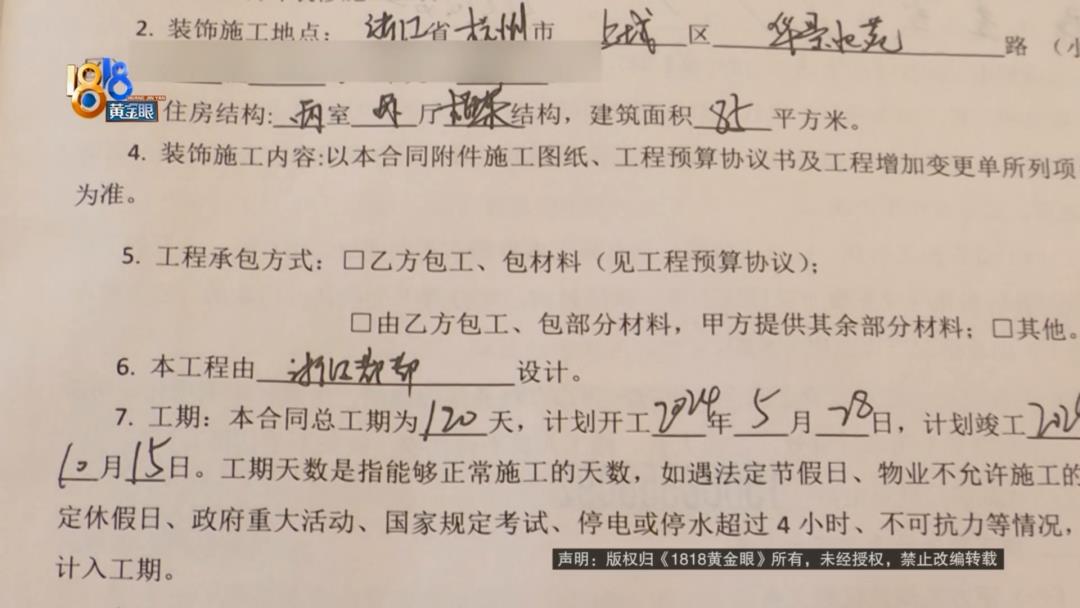 2. 装饰施工地点：浙江省杭州市 上城 区 华景北苑 路（小
1818
黄金眼
住房结构:两室 厅 结构，建筑面积 85 平方米。
4. 装饰施工内容:以本合同附件施工图纸、工程预算协议书及工程增加变更单所列项
为准。
5. 工程承包方式：□乙方包工、包材料（见工程预算协议）;
□由乙方包工、包部分材料，甲方提供其余部分材料；□其他。
6. 本工程由 浙江都都 设计。
7. 工期：本合同总工期为 120 天，计划开工 2024 年 5 月 28 日，计划竣工 2024
10 月 15 日。工期天数是指能够正常施工的天数，如遇法定节假日、物业不允许施工的
定休假日、政府重大活动、国家规定考试、停电或停水超过 4 小时、不可抗力等情况，
计入工期。
声明：版权归《1818黄金眼》所有，未经授权，禁止改编转载